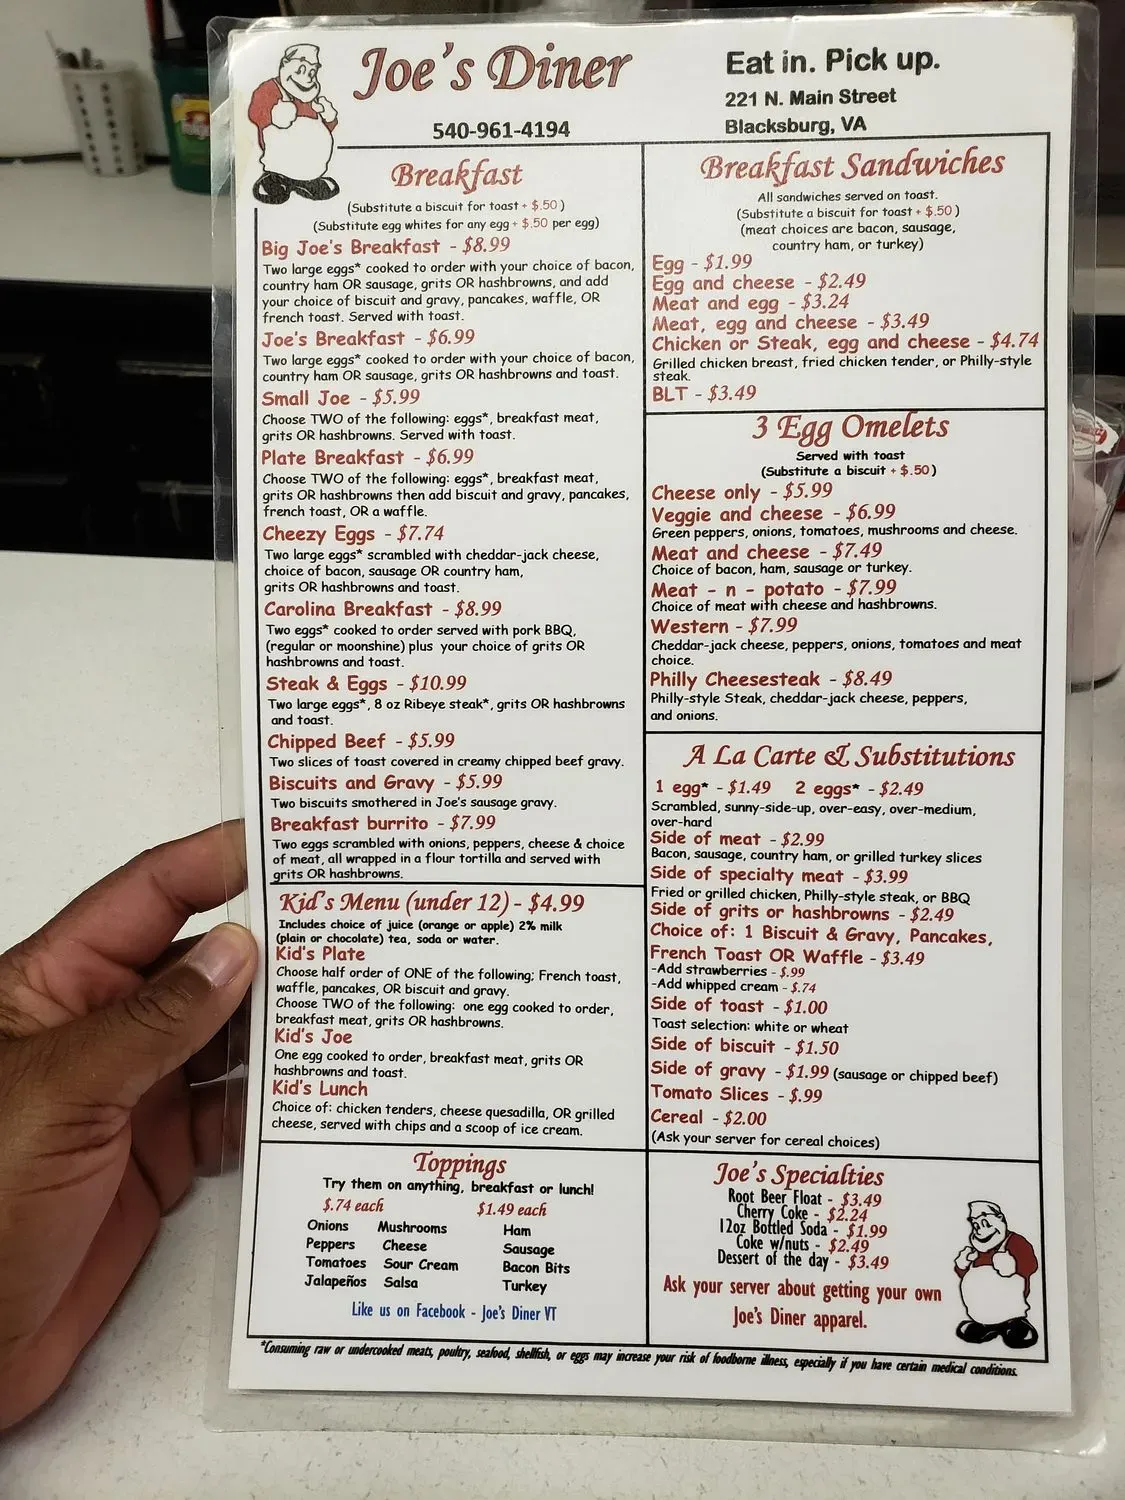 Joe's Diner
540-961-4194
Eat in. Pick up.
221 N. Main Street
Blacksburg, VA
Breakfast
(Substitute a biscuit for toast + $.50)
(Substitute egg whites for any egg + $.50 per egg)
Big Joe's Breakfast - $8.99
Two large eggs* cooked to order with your choice of bacon,
country ham OR sausage, grits OR hashbrowns, and add
your choice of biscuit and gravy, pancakes, waffle, OR
french toast. Served with toast.
Joe's Breakfast - $6.99
Two large eggs* cooked to order with your choice of bacon,
country ham OR sausage, grits OR hashbrowns and toast.
Small Joe - $5.99
Choose TWO of the following: eggs*, breakfast meat,
grits OR hashbrowns. Served with toast.
Plate Breakfast - $6.99
Choose TWO of the following: eggs*, breakfast meat,
grits OR hashbrowns then add biscuit and gravy, pancakes,
french toast, OR a waffle.
Cheezy Eggs - $7.74
Two large eggs* scrambled with cheddar-jack cheese,
choice of bacon, sausage OR country ham,
grits OR hashbrowns and toast.
Carolina Breakfast - $8.99
Two eggs* cooked to order served with pork BBQ,
(regular or moonshine) plus your choice of grits OR
hashbrowns and toast.
Steak & Eggs - $10.99
Two large eggs*, 8 oz Ribeye steak*, grits OR hashbrowns
and toast.
Chipped Beef - $5.99
Two slices of toast covered in creamy chipped beef gravy.
Biscuits and Gravy - $5.99
Two biscuits smothered in Joe's sausage gravy.
Breakfast burrito - $7.99
Two eggs scrambled with onions, peppers, cheese & choice
of meat, all wrapped in a flour tortilla and served with
grits OR hashbrowns.
Kid's Menu (under 12) - $4.99
Includes choice of juice (orange or apple) 2% milk
(plain or chocolate) tea, soda or water.
Kid's Plate
Choose half order of ONE of the following; French toast,
waffle, pancakes, OR biscuit and gravy.
Choose TWO of the following: one egg cooked to order,
breakfast meat, grits OR hashbrowns.
Kid's Joe
One egg cooked to order, breakfast meat, grits OR
hashbrowns and toast.
Kid's Lunch
Choice of: chicken tenders, cheese quesadilla, OR grilled
cheese, served with chips and a scoop of ice cream.
Toppings
Try them on anything, breakfast or lunch!
$.74 each $1.49 each
Onions Mushrooms Ham
Peppers Cheese Sausage
Tomatoes Sour Cream Bacon Bits
Jalapeños Salsa Turkey
Like us on Facebook - Joe's Diner VT
Breakfast Sandwiches
All sandwiches served on toast.
(Substitute a biscuit for toast + $.50)
(meat choices are bacon, sausage,
country ham, or turkey)
Egg - $1.99
Egg and cheese - $2.49
Meat and egg - $3.24
Meat, egg and cheese - $3.49
Chicken or Steak, egg and cheese - $4.74
Grilled chicken breast, fried chicken tender, or Philly-style
steak.
BLT - $3.49
3 Egg Omelets
Served with toast
(Substitute a biscuit + $.50)
Cheese only - $5.99
Veggie and cheese - $6.99
Green peppers, onions, tomatoes, mushrooms and cheese.
Meat and cheese - $7.49
Choice of bacon, ham, sausage or turkey.
Meat - n - potato - $7.99
Choice of meat with cheese and hashbrowns.
Western - $7.99
Cheddar-jack cheese, peppers, onions, tomatoes and meat
choice.
Philly Cheesesteak - $8.49
Philly-style Steak, cheddar-jack cheese, peppers,
and onions.
A La Carte & Substitutions
1 egg* - $1.49 2 eggs* - $2.49
Scrambled, sunny-side-up, over-easy, over-medium,
over-hard
Side of meat - $2.99
Bacon, sausage, country ham, or grilled turkey slices
Side of specialty meat - $3.99
Fried or grilled chicken, Philly-style steak, or BBQ
Side of grits or hashbrowns - $2.49
Choice of: 1 Biscuit & Gravy, Pancakes,
French Toast OR Waffle - $3.49
-Add strawberries - $.99
-Add whipped cream - $.74
Side of toast - $1.00
Toast selection: white or wheat
Side of biscuit - $1.50
Side of gravy - $1.99 (sausage or chipped beef)
Tomato Slices - $.99
Cereal - $2.00
(Ask your server for cereal choices)
Joe's Specialties
Root Beer Float - $3.49
Cherry Coke - $2.24
12oz Bottled Soda - $1.99
Coke w/nuts - $2.49
Dessert of the day - $3.49
Ask your server about getting your own
Joe's Diner apparel.
*Consuming raw or undercooked meats, poultry, seafood, shellfish, or eggs may increase your risk of foodborne illness, especially if you have certain medical conditions.